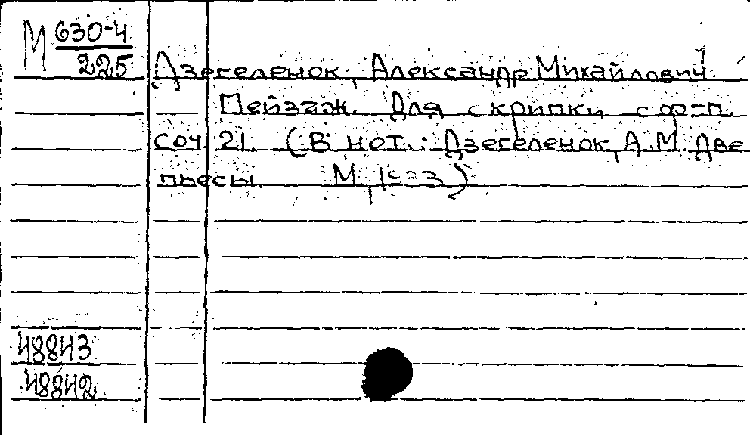 М 630-4
225
Дзегеленок, Александр Михайлович.
Пейзаж. Для скрипки с ф-п.
Соч. 21. (В нот.: Дзегеленок, А.М. Две
пьесы. М.,
48843
48842